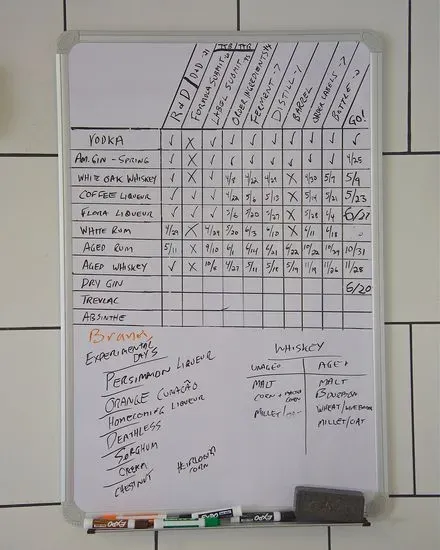 TTB TTB
R & D / D&D -21
FORMULA SUBMIT
LABEL SUBMIT
ORDER INGREDIENTS
FERMENT
DISTILL
BARREL
ORDER LABELS
BOTTLE
GO!
VODKA ✓ X ✓ ✓ ✓ ✓ ✓ ✓ ✓ ✓
AM. GIN - SPRING ✓ X ✓ ✓ ✓ ✓ ✓ ✓ ✓ 4/25
WHITE OAK WHISKEY ✓ X ✓ 4/8 4/22 4/29 X 4/30 5/7 5/9
COFFEE LIQUEUR ✓ ✓ ✓ 4/22 5/6 5/13 X 5/14 5/21 5/23
FLORA LIQUEUR ✓ ✓ ✓ 5/6 5/20 5/27 X 5/28 6/4 6/27
WHITE RUM 4/29 X 4/29 5/20 6/3 6/10 X 6/11 6/18
AGED RUM 5/11 X 9/10 6/1 4/14 4/21 6/22 10/22 10/29 10/31
AGED WHISKEY ✓ X 10/8 4/27 5/11 5/18 5/19 11/19 11/26 11/28
DRY GIN 6/20
TREVLAC
ABSINTHE
Brandy
EXPERIMENTAL
DAYS
PERSIMMON LIQUEUR
ORANGE CURAÇÃO
HOMECOMING LIQUEUR
DEATHLESS
SORGHUM
CREMA
CHESTNUT
HEIRLOOM
CORN
WHISKEY
UNAGED AGED
MALT MALT
CORN + MALTED CORN BOURBON
MILLET/OAT WHEAT/
MILLET/OAT
EXPO